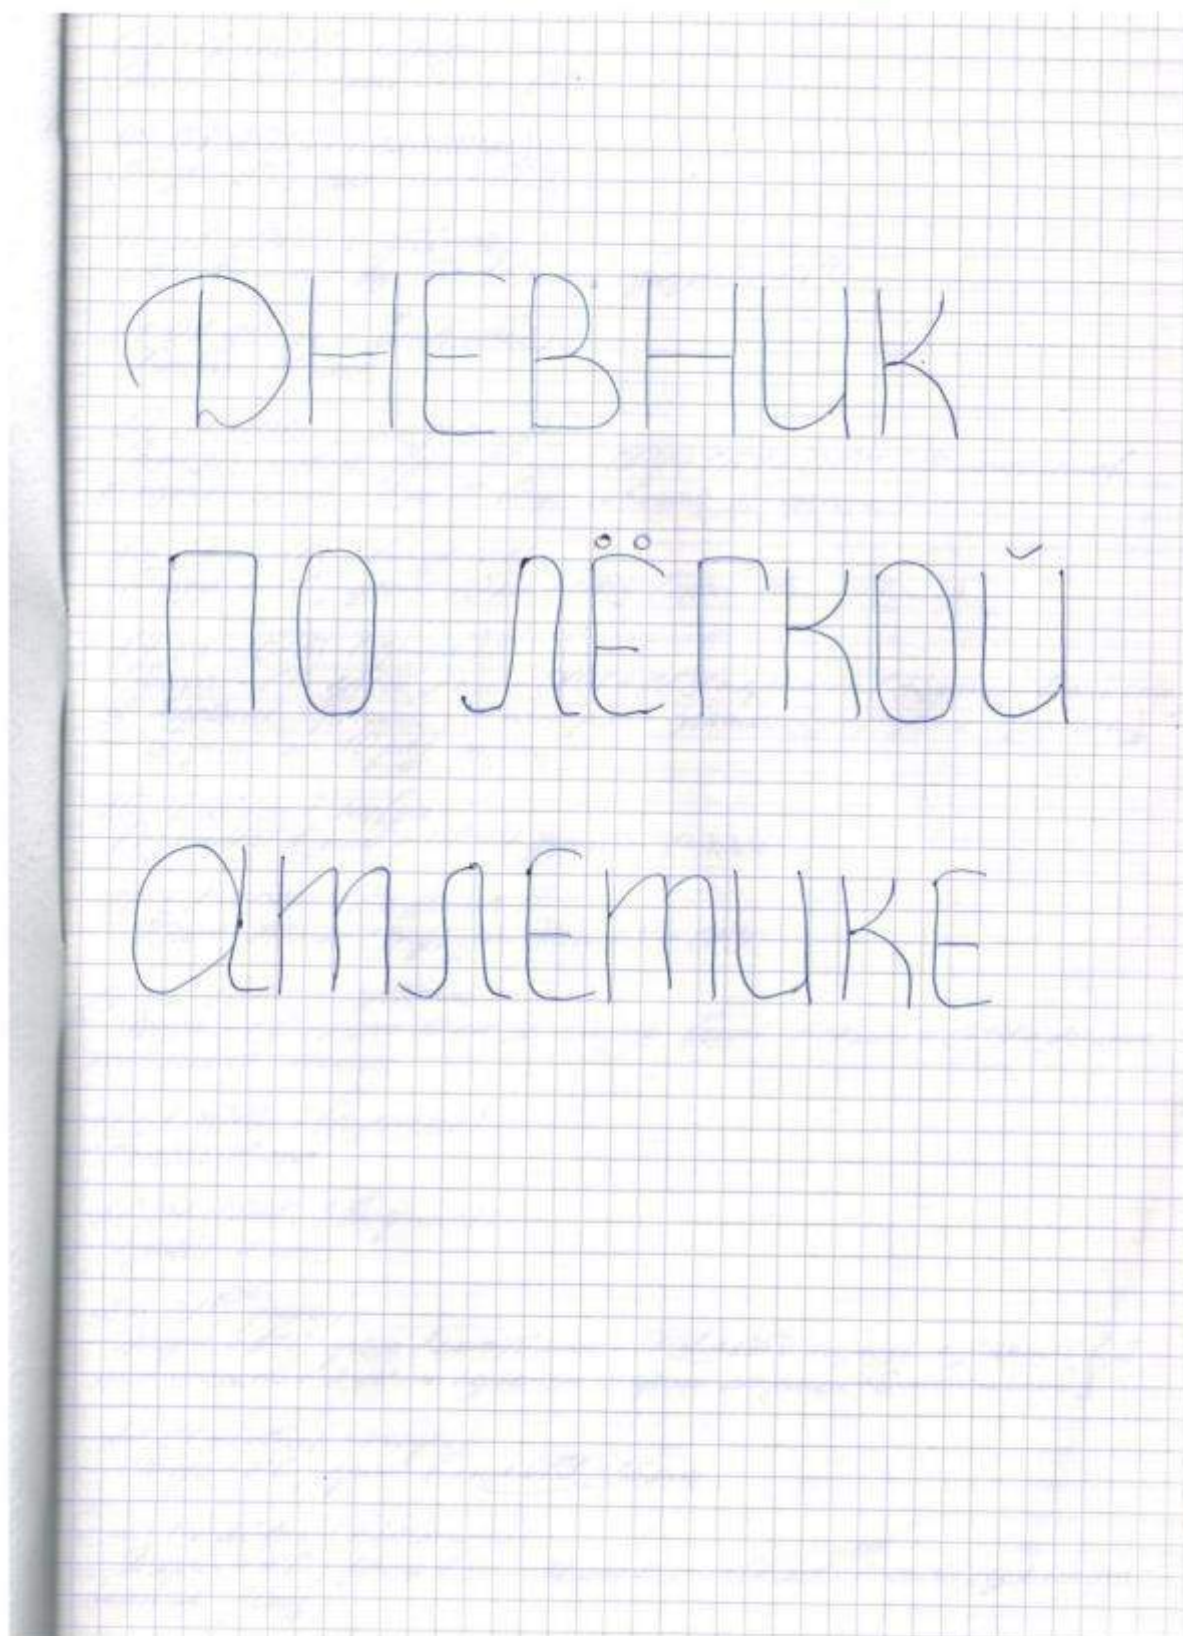 ДНЕВНИК
ПО ЛЁГКОЙ
АТЛЕТИКЕ